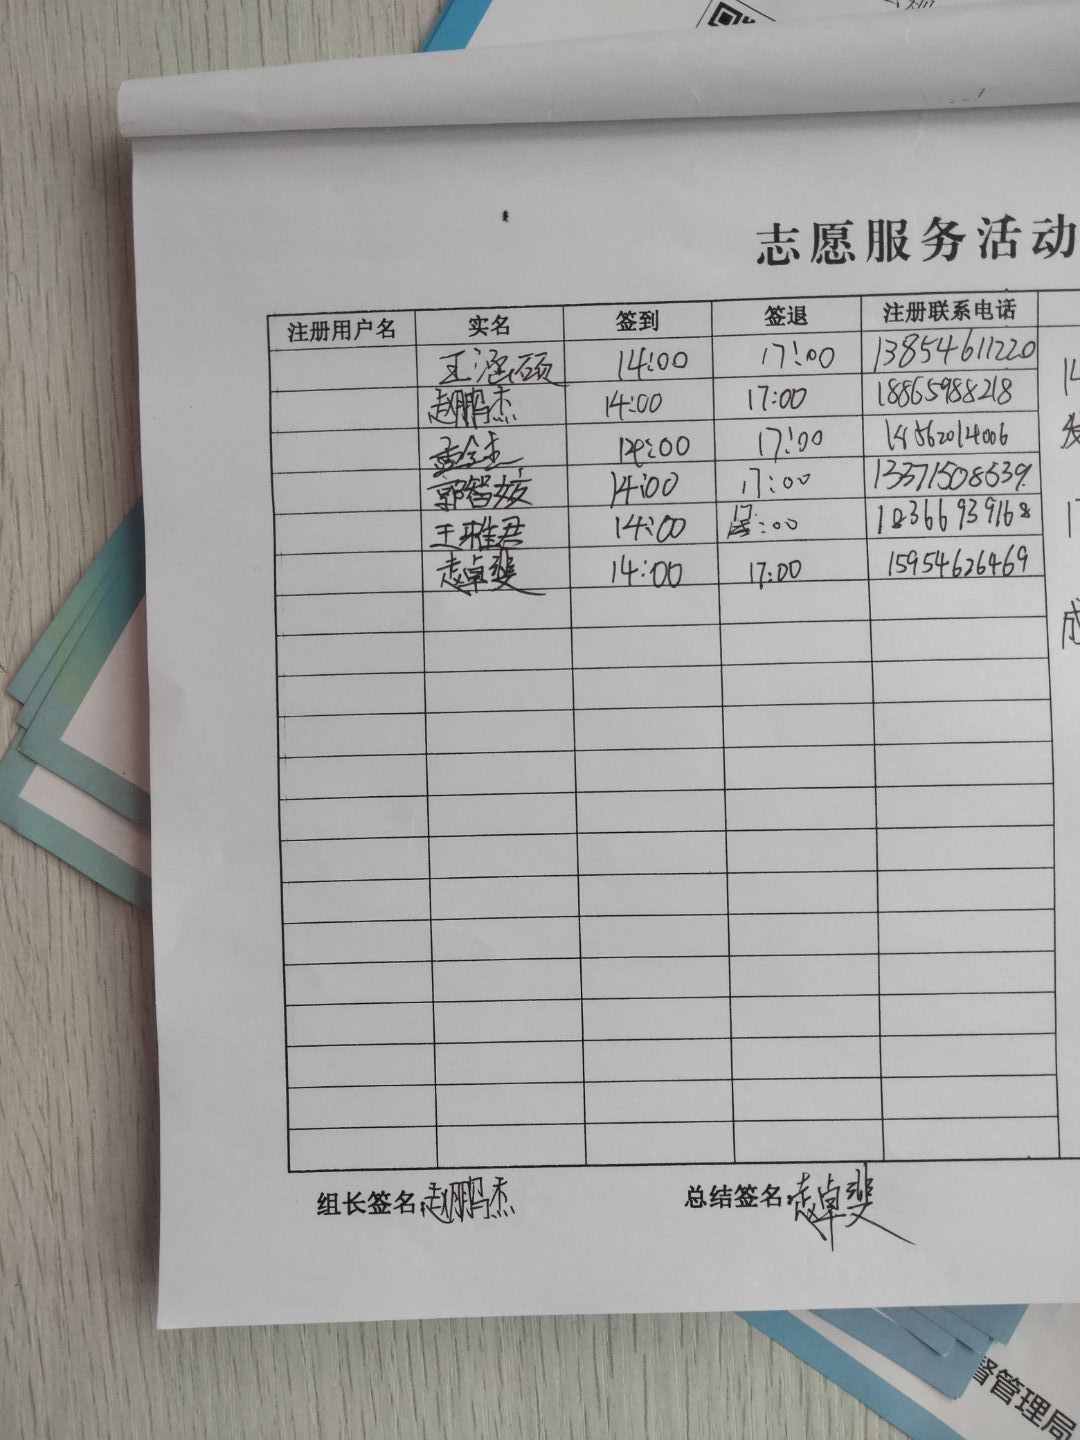 志愿服务活动
注册用户名 实名 签到 签退 注册联系电话
王涵硕 14:00 17:00 13854611220
赵鹏杰 14:00 17:00 18865988218
14:00 17:00
郭智姣 14:00 17:00 13371508539
王雅君 14:00 17:00 18366939168
赵卓斐 14:00 17:00 15954626469
成
组长签名:赵鹏杰 总结签名:赵卓斐
督管理局